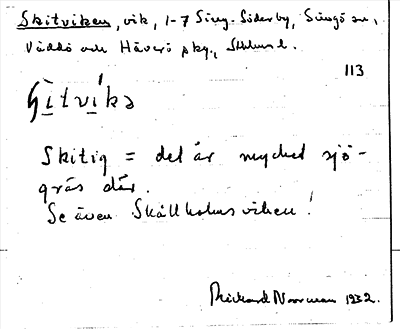 Skitviken, vik, 1-7 Sing. Söderby, Singö sn,
Väddö och Häverö skg., Sthlms l.
113
ʃìtvìka
Skitig = det är mycket sjö-
gräs där.
Se även Skällholmsviken!
Rickard Norrman 1932.